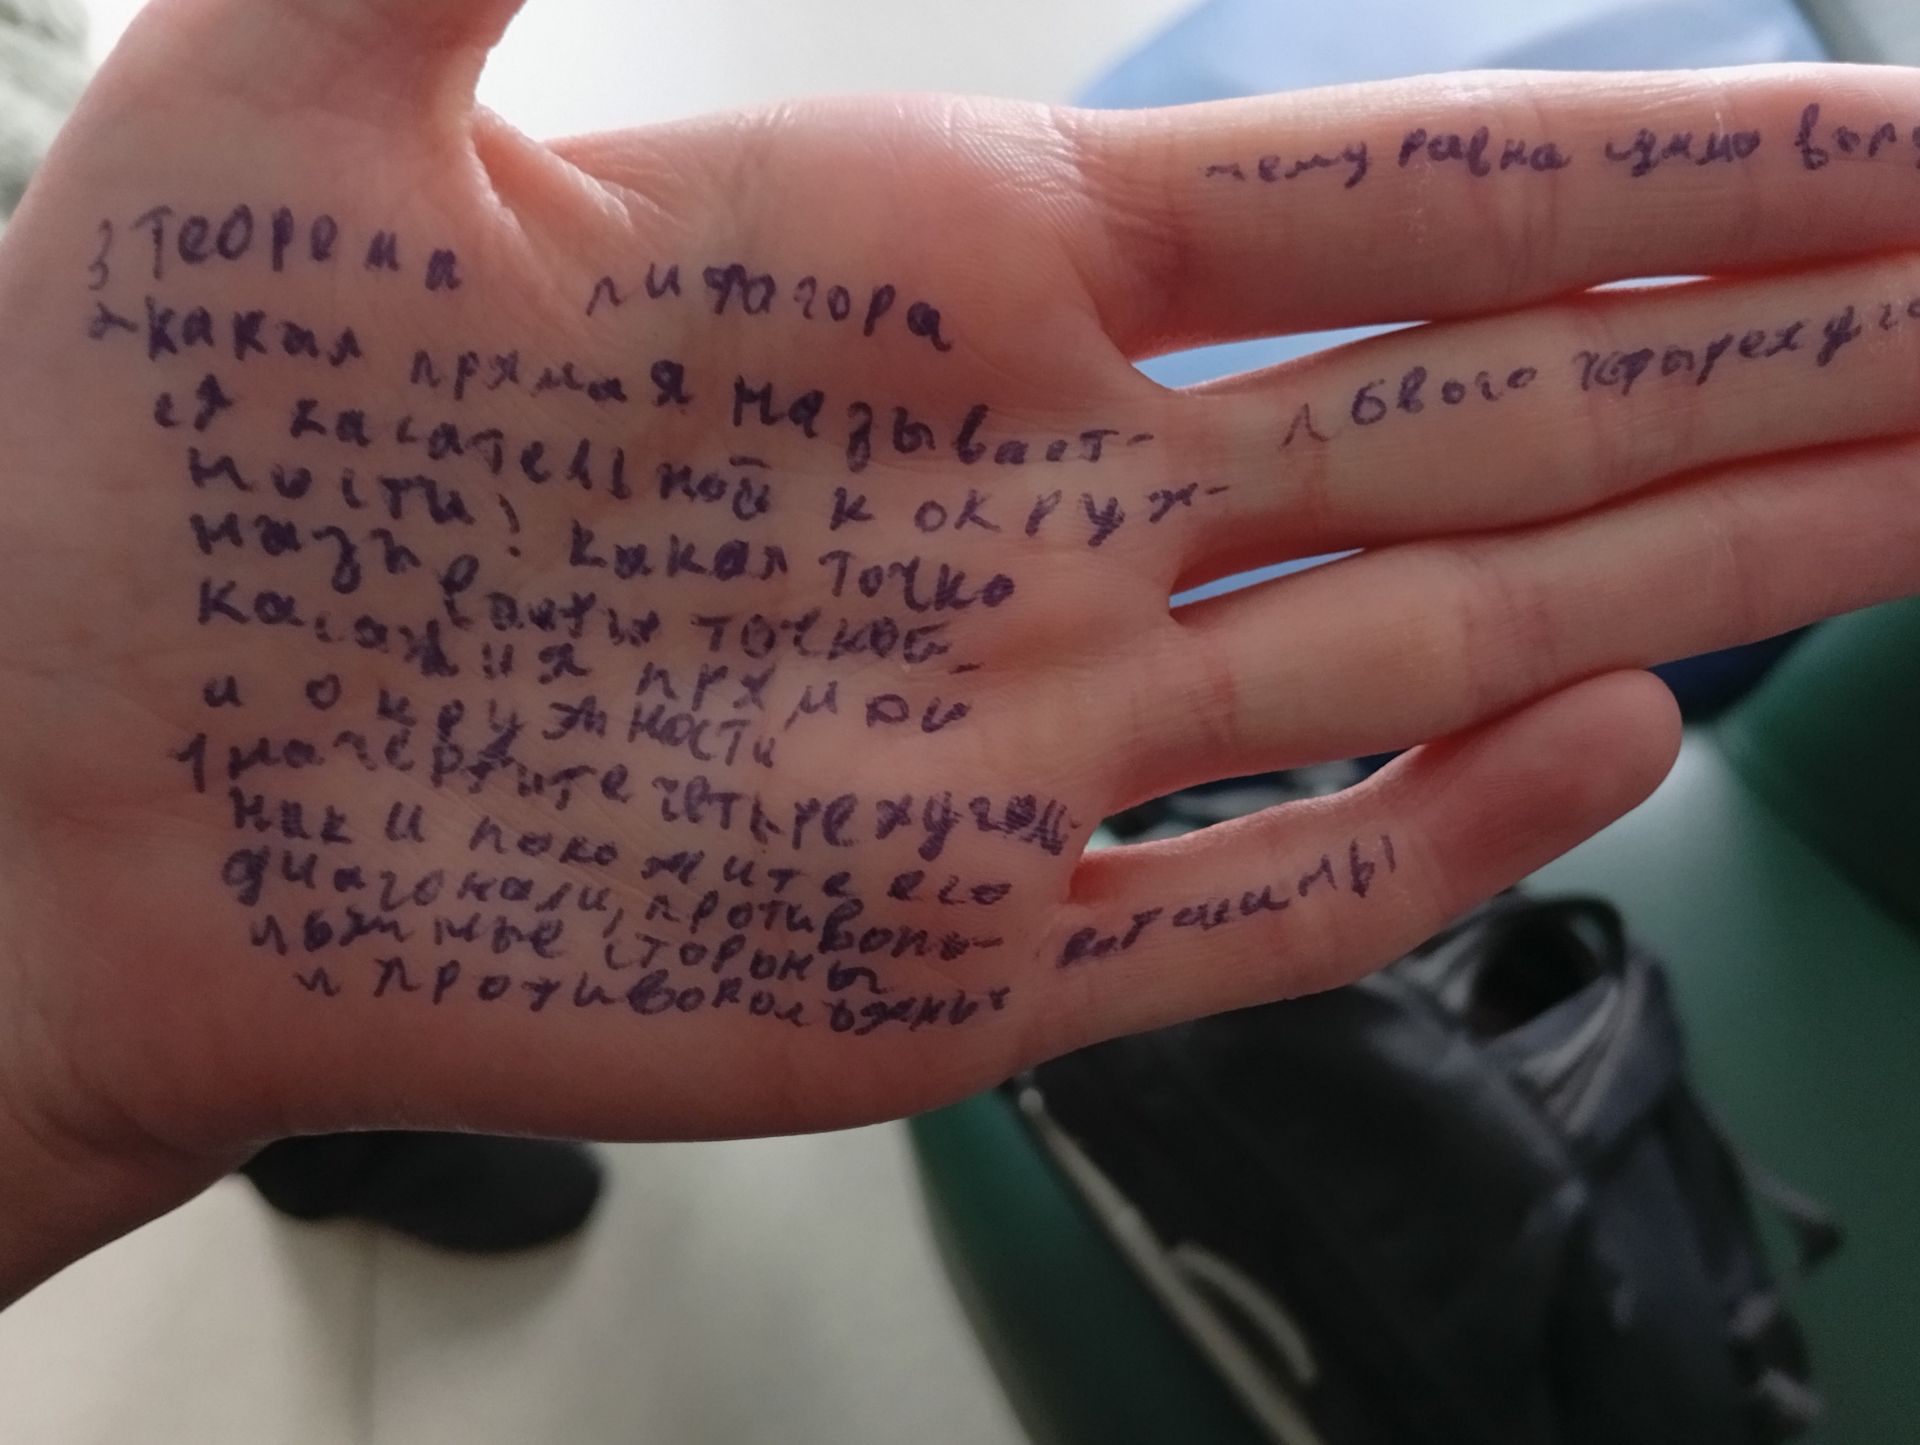 3 Теорема пифагора
2 какая прямая называет-
ся касательной к окруж-
ности? какая точка
называется точкой
касания прямой
и окружности
1 начертите четырехуголь
ник и покожите его
диагонали, противопо-
ложные стороны
и противоположные
вершины
чему равна сумма
любвого четырехуго